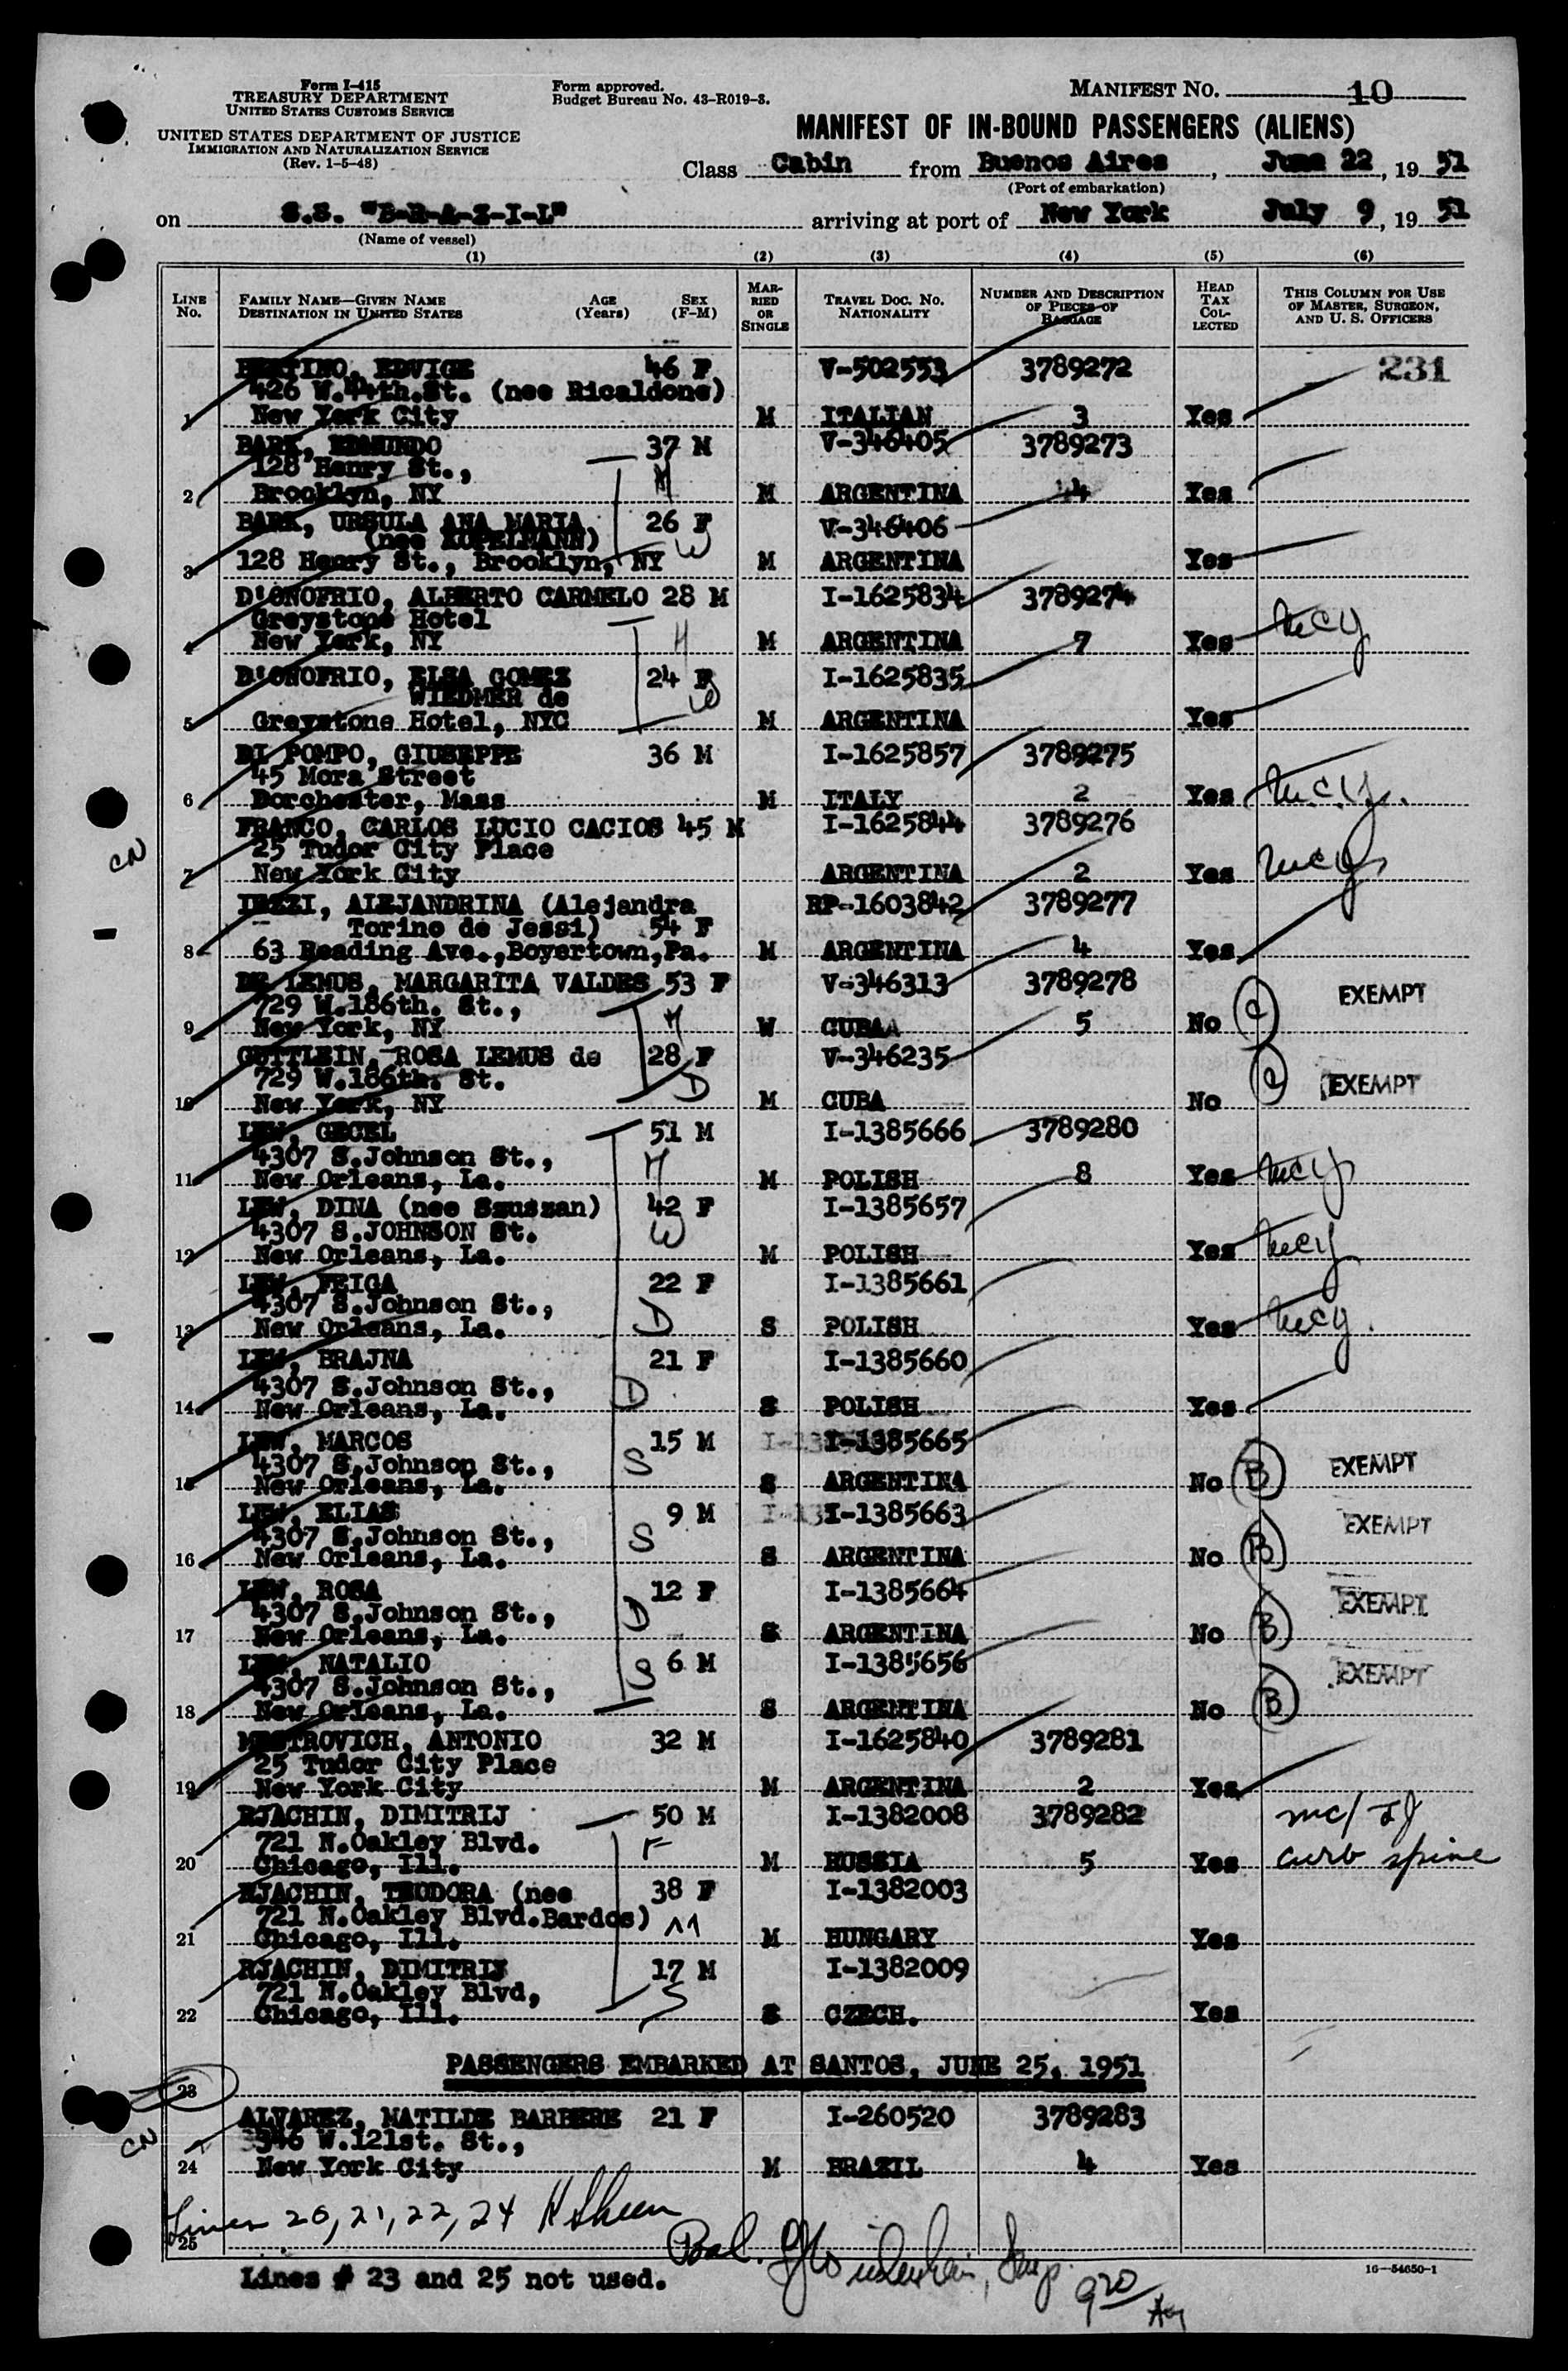 Form I-415
TREASURY DEPARTMENT
UNITED STATES CUSTOMS SERVICE
UNITED STATES DEPARTMENT OF JUSTICE
IMMIGRATION AND NATURALIZATION SERVICE
(Rev. 1-5-48)
Form approved.
Budget Bureau No. 43-R019-3.
MANIFEST NO. 10
MANIFEST OF IN-BOUND PASSENGERS (ALIENS)
Class Cabin from Buenos Aires, June 22, 19 51
(Port of embarkation)
on S.S. "B-R-A-Z-I-L" arriving at port of New York July 9, 19 51
(Name of vessel)
(1) (2) (3) (4) (5) (6)
LINE NO.
FAMILY NAME—GIVEN NAME
DESTINATION IN UNITED STATES
AGE (Years)
SEX (F-M)
MARRIED OR SINGLE
TRAVEL DOC. NO.
NATIONALITY
NUMBER AND DESCRIPTION OF PIECES OF BAGGAGE
HEAD TAX COLLECTED
THIS COLUMN FOR USE OF MASTER, SURGEON, AND U. S. OFFICERS
BERTINO, EDVIGE 46 F V-502553 3789272 231
426 W.44th.St. (nee Ricaldone)
1 New York City M ITALIAN 3 Yes
BARK, EDMUNDO 37 M V-346405 3789273
128 Henry St., H
2 Brooklyn, NY M ARGENTINA 14 Yes
BARK, URSULA ANA MARIA 26 F V-346406
(nee KOPELMANN) W
3 128 Henry St., Brooklyn, NY M ARGENTINA Yes
D'ONOFRIO, ALBERTO CARMELO 28 M I-1625834 3789274
Greystone Hotel H
4 New York, NY M ARGENTINA 7 Yes
D'ONOFRIO, ELSA GOMEZ 24 F I-1625835
WIEDMER de W
5 Greystone Hotel, NYC M ARGENTINA Yes
DI POMPO, GIUSEPPE 36 M I-1625857 3789275
45 Mora Street
6 Dorchester, Mass M ITALY 2 Yes
FRANCO, CARLOS LUCIO CACIOS 45 M I-1625844 3789276
CN 25 Tudor City Place
7 New York City ARGENTINA 2 Yes
IEZZI, ALEJANDRINA (Alejandra RP-1603842 3789277
Torino de Jessi) 54 F
8 63 Reading Ave.,Boyertown,Pa. M ARGENTINA 4 Yes
DE LEMUS, MARGARITA VALDES 53 F V-346313 3789278 EXEMPT
729 W.186th. St., M
9 New York, NY W CUBA 5 No
GUTTLEIN, ROSA LEMUS de 28 F V-346235
729 W.186th. St. D EXEMPT
10 New York, NY M CUBA No
LEW, GECEL 51 M I-1385666 3789280
4307 S.Johnson St., H
11 New Orleans, La. M POLISH 8 Yes
LEW, DINA (nee Szuszan) 42 F I-1385657
4307 S.JOHNSON St. W
12 New Orleans, La. M POLISH Yes
LEW, FEIGA 22 F I-1385661
4307 S.Johnson St., D
13 New Orleans, La. S POLISH Yes
LEW, BRAJNA 21 F I-1385660
4307 S.Johnson St., D
14 New Orleans, La. S POLISH Yes
LEW, MARCOS 15 M I-1385665
4307 S.Johnson St., S EXEMPT
15 New Orleans, La. S ARGENTINA No B
LEW, ELIAS 9 M I-1385663
4307 S.Johnson St., S EXEMPT
16 New Orleans, La. S ARGENTINA No B
LEW, ROSA 12 F I-1385664
4307 S.Johnson St., D EXEMPT
17 New Orleans, La. S ARGENTINA No B
LEW, NATALIO 6 M I-1385656
4307 S.Johnson St., S EXEMPT
18 New Orleans, La. S ARGENTINA No B
MESTROVICH, ANTONIO 32 M I-1625840 3789281
25 Tudor City Place
19 New York City M ARGENTINA 2 Yes
RJACHIN, DIMITRIJ 50 M I-1382008 3789282
721 N.Oakley Blvd. F
20 Chicago, Ill. M RUSSIA 5 Yes curb spine
RJACHIN, TEODORA (nee 38 F I-1382003
721 N.Oakley Blvd.Bardos) M
21 Chicago, Ill. M HUNGARY Yes
RJACHIN, DIMITRIJ 17 M I-1382009
721 N.Oakley Blvd, S
22 Chicago, Ill. S CZECH. Yes
PASSENGERS EMBARKED AT SANTOS, JUNE 25, 1951
23
ALVAREZ, MATILDE BARBERE 21 F I-260520 3789283
CN 546 W.121st. St.,
24 New York City M BRAZIL 4 Yes
Lines 20, 21, 22, 24
25
Lines # 23 and 25 not used.
16—54650-1